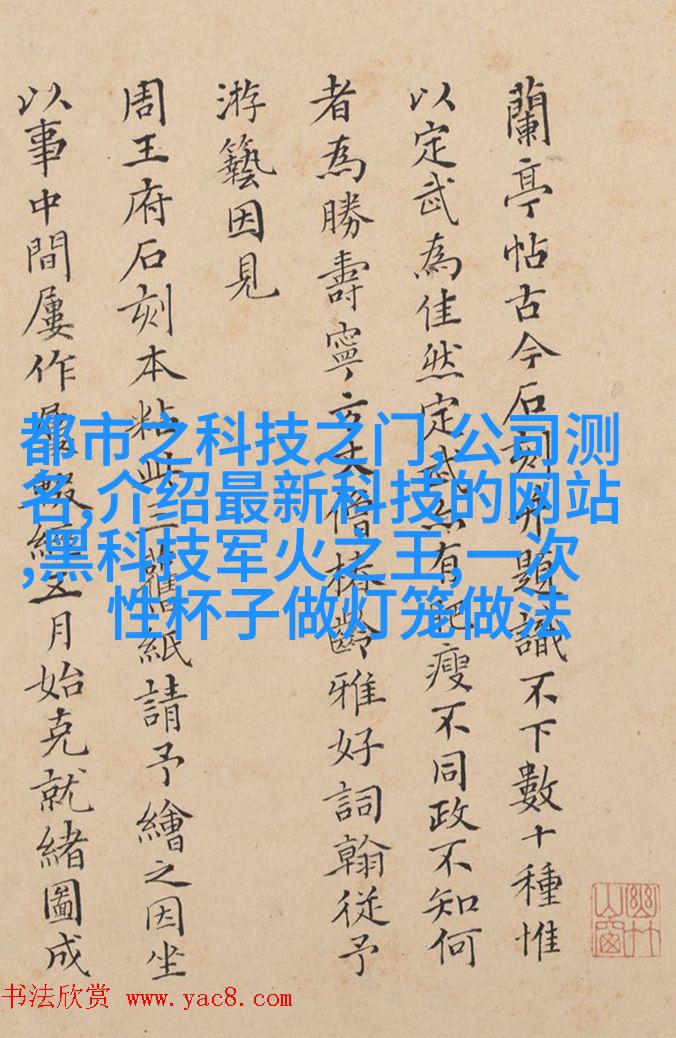 蘭亭帖古今石刻并題識不下數十種惟
以定武為佳然定武亦有肥瘦不同政不知何
者為勝壽寧齡雅好詞翰從予
游藝因見
周王府石刻本粘此三舊紙請予繪之因坐
以事中間屢作屢輟經五月始克就緒圖成
都市之科技之门,公司测
名,介绍最新科技的网站
,黑科技军火之王,一次
性杯子做灯笼做法
幽竹
山窗
书法欣赏 www.yac8.com